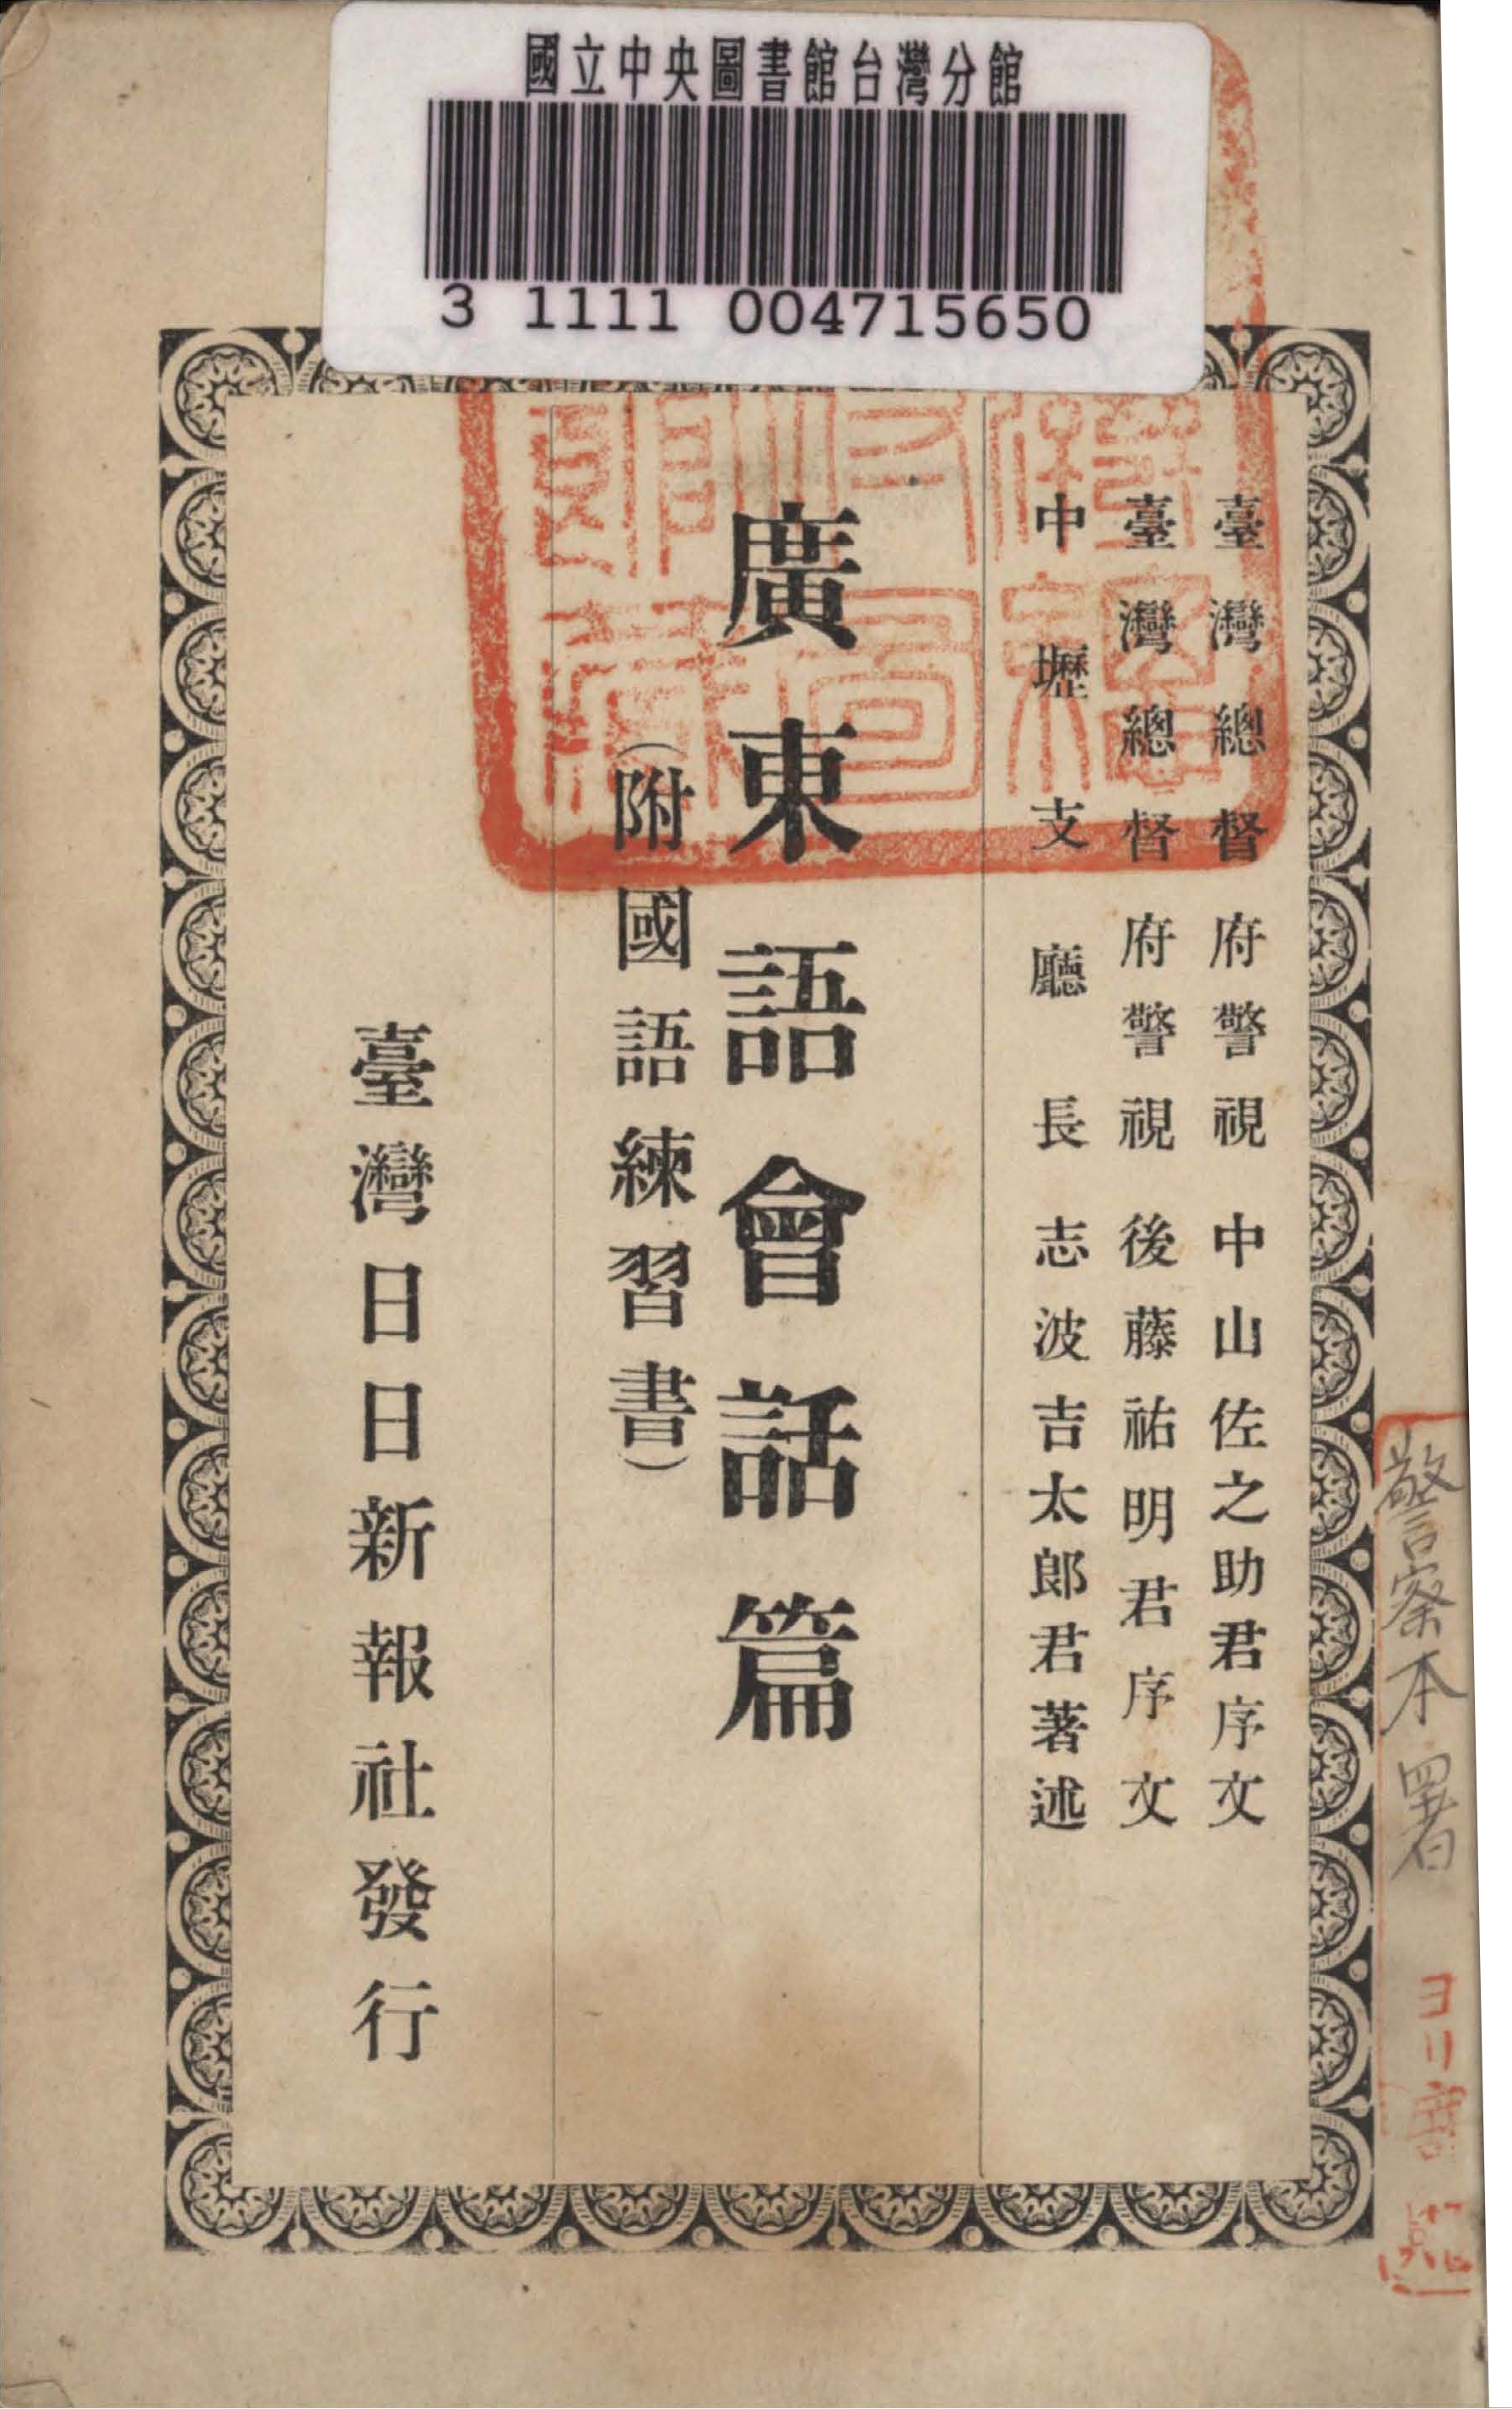 國立中央圖書館台灣分館
3 1111 004715650
臺灣總督府警視中山佐之助君序文
臺灣總督府警視後藤祐明君序文
中壢支廳長志波吉太郎君著述
廣東語會話篇
（附國語練習書）
臺灣日日新報社發行
警察本署
ヨリ寄